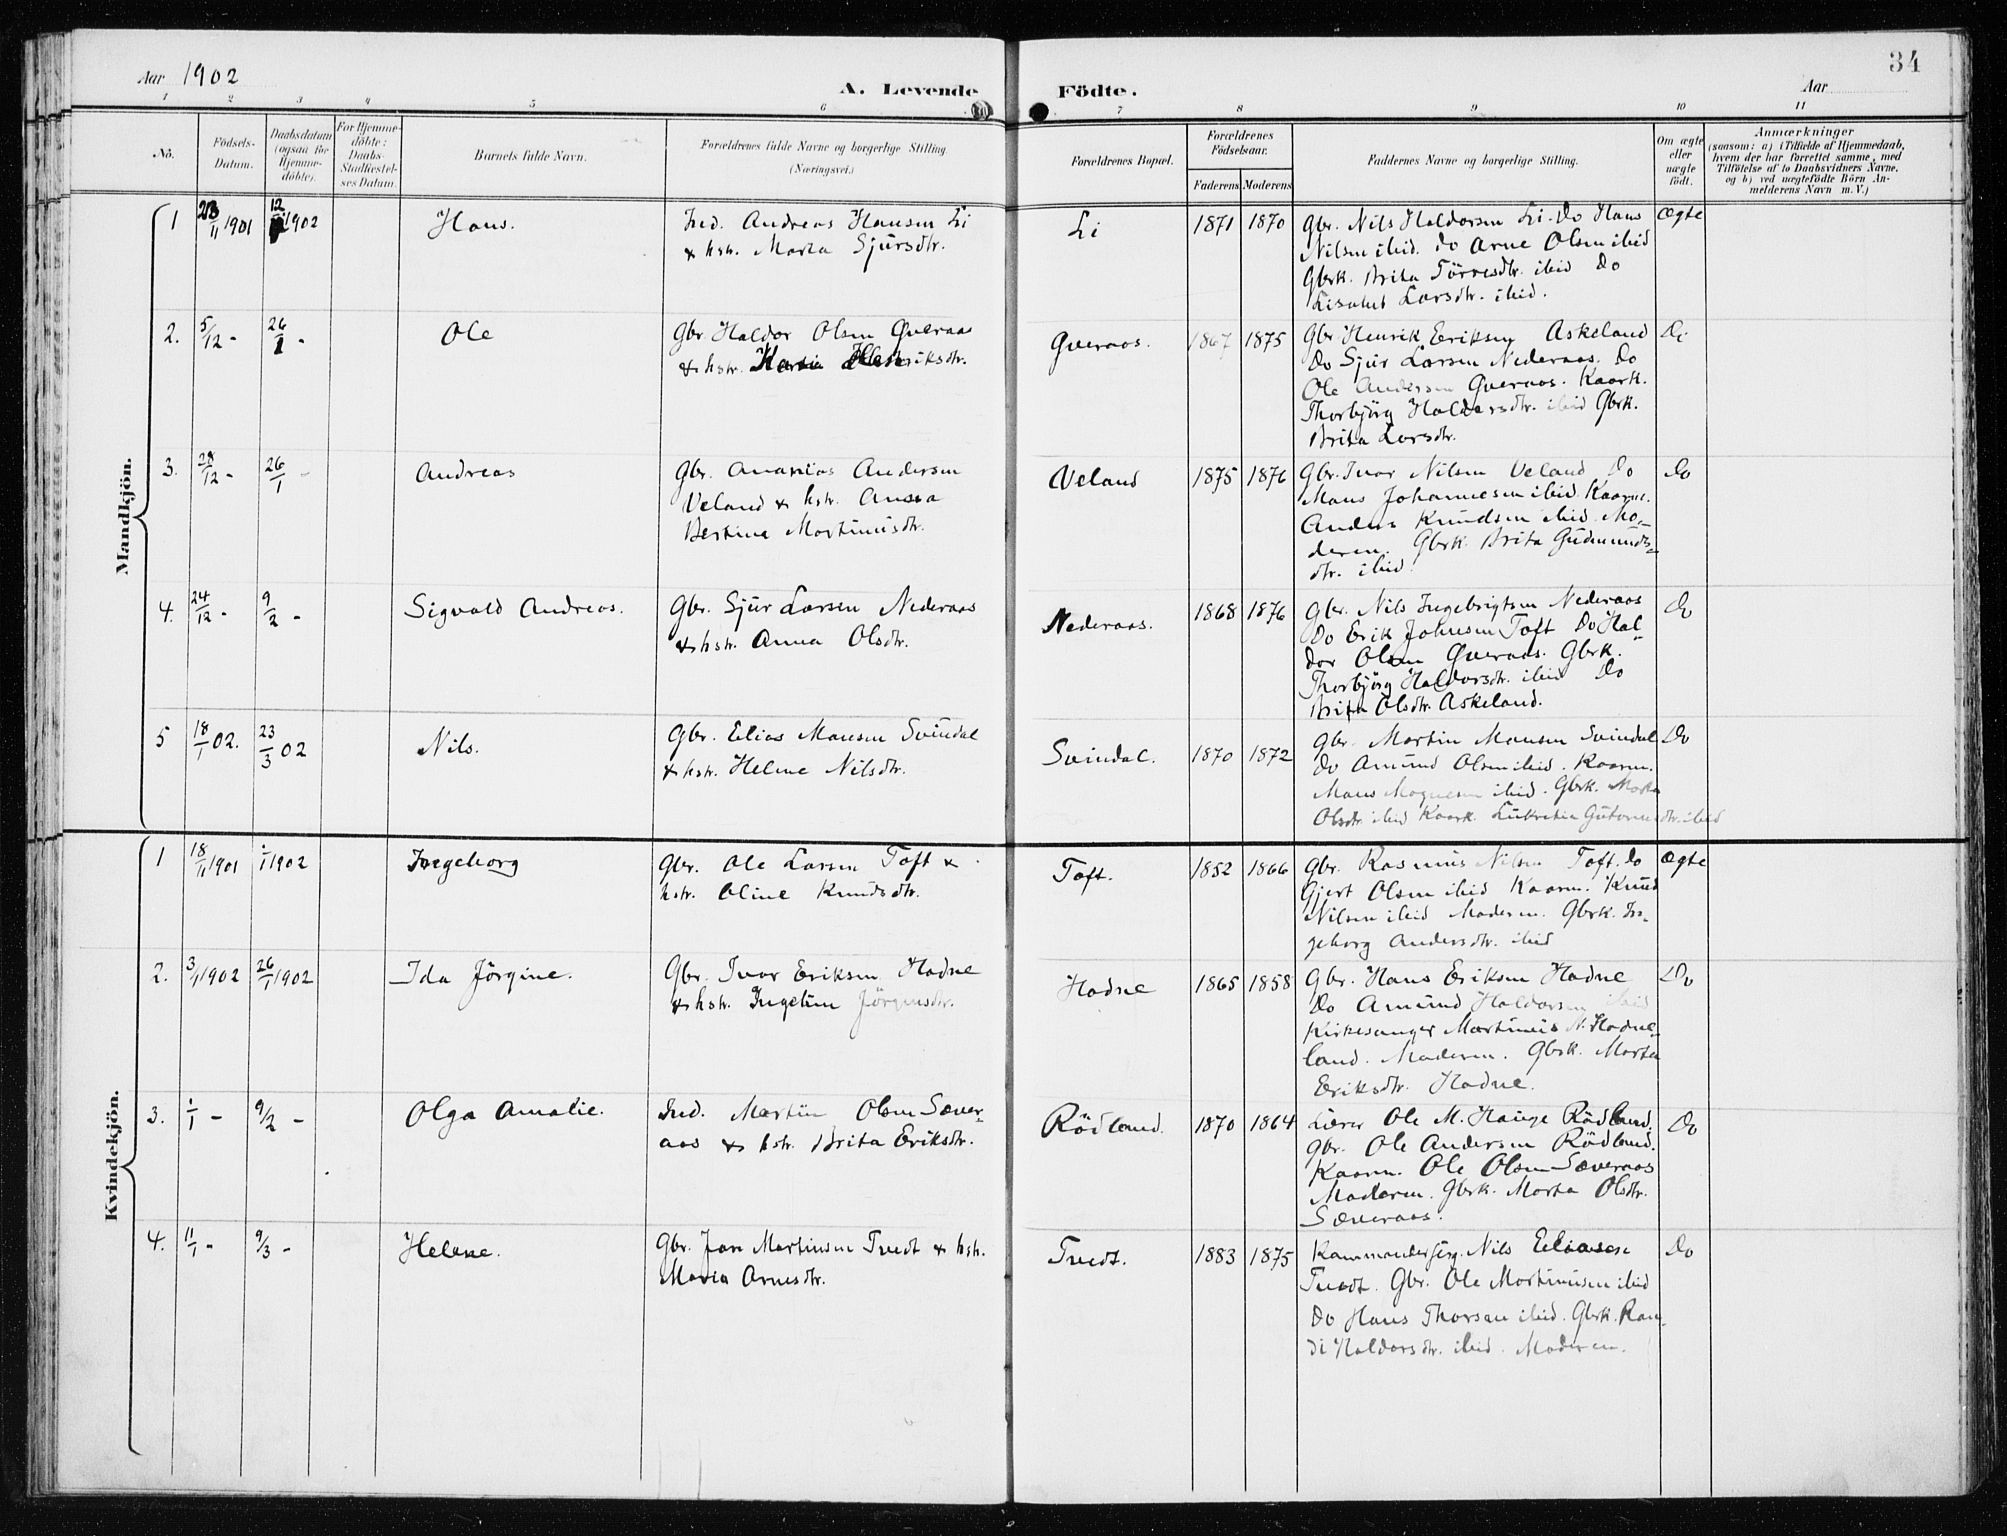 34
Aar 1902
A. Levende Födte.
Aar
1 2 3 4 5 6 7 8 9 10 11
No.
Födsels-
Datum.
Daabsdatum
(ogsaa for
Hjemme-
döbte).
For Hjemme-
döbte:
Daabs-
Stadfæstel-
ses Datum.
Barnets fulde Navn.
Forældrenes fulde Navne og borgerlige Stilling.
(Næringsvei.)
Forældrenes Bopæl.
Forældrenes
Födselsaar.
Faderens
Moderens
Faddernes Navne og borgerlige Stilling.
Om ægte
eller
uægte
födt.
Anmærkninger
(saasom: a) i Tilfælde af Hjemmedaab,
hvem der har forrettet samme, med
Tilföielse af to Daabsvidners Navne,
og b) ved uægtefödte Börn An-
melderens Navn m. V.)
Mandkjön.
1
/11 1901
12/1 1902
Hans.
Ind. Andreas Hansen Li
& hstr. Marta Sjursdtr.
Li
1871
1870
Gbr. Nils Haldorsen Li. Do Hans
Nilsen ibid. Do Arne Olsen ibid
Gbrk. Brita Törresdtr. ibid Do
Lisabet Larsdtr. ibid.
ægte
2.
5/12 -
26/1 -
Ole
Gbr. Haldor Olsen Qveraas
& hstr. Henriksdtr.
Qveraas.
1867
1875
Gbr Henrik Eriksen Askeland
Do Sjur Larsen Nederaas. Do
Ole Andersen Qveraas. Kaark.
Thorbjörg Haldorsdtr. ibid Gbrk.
Brita Larsdtr.
Do
3.
/12 -
26/1 -
Andreas
Gbr. Ananias Andersen
Veland & hstr. Anna
Bertine Martinusdtr.
Veland
1875
1876
Gbr. Ivar Nilsen Veland Do
Mans Johannesen ibid. Kaarm.
Anders Knudsen ibid. Mo-
deren. Gbrk. Brita Gudmunds-
dtr. ibid.
Do
4.
24/12 -
9/2 -
Sigvald Andreas.
Gbr. Sjur Larsen Nederaas
& hstr. Anna Olsdtr.
Nederaas.
1868
1876
Gbr. Nils Ingebrigtsen Nederaas
Do Erik Johnsen Toft Do Hal-
dor Olsen Qveraas. Gbrk.
Thorbjörg Haldorsdtr. ibid Do
Brita Olsdtr. Askeland.
Do
5
18/1 02.
23/3 02
Nils.
Gbr. Elias Monsen Svindal
& hstr. Helene Nilsdtr.
Svindal.
1870
1872
Gbr. Martin Monsen Svindal
Do Amund Olsen ibid. Kaarm.
Mons Mognesen ibid. Gbrk. Marta
Olsdtr. ibid Kaark. Lukretia Gutormsdtr. ibid
Do
Kvindekjön.
1
18/11 1901
1/1 1902
Ingeborg
Gbr. Ole Larsen Toft &
hstr. Oline Knudsdtr.
Toft.
1852
1866
Gbr. Rasmus Nilsen Toft. Do
Gjert Olsen ibid Kaarm. Knud
Nilsen ibid Moderen. Gbrk. In-
geborg Andersdtr. ibid
ægte
2.
3/1 1902
26/1 1902
Ida Jörgine.
Gbr. Ivar Eriksen Hadne
& hstr. Ingeline Jörgensdtr.
Hadne
1865
1858
Gbr. Hans Eriksen Hadne
Do Amund Haldorsen ibid
Kirkesanger Martinus N. Hadne-
land. Moderen. Gbrk. Marta
Eriksdtr. Hadne.
Do
3.
1/1 -
9/2 -
Olga Amalie.
Ind. Martin Olsen Sæver-
aas & hstr. Brita Eriksdtr.
Rödland.
1870
1864
Lærer Ole M. Hauge Rödland.
Gbr. Ole Andersen Rödland.
Kaarm. Ole Olsen Sæveraas
Moderen. Gbrk. Marta Olsdtr.
Sæveraas.
Do
4.
11/1 -
9/3 -
Helene.
Gbr. Jan Martinsen Tvedt & hstr.
Maria Arnesdtr.
Tvedt.
1883
1875
Kommandersjerg. Nils Eliassen
Tvedt. Gbr. Ole Martinusen ibid
Do Hans Thorsen ibid. Gbrk. Ran-
di Haldorsdtr. ibid. Moderen.
Do